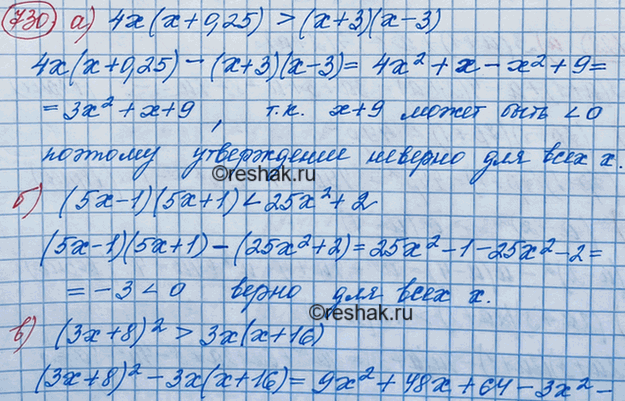 730 а) 4x(x+0,25) > (x+3)(x-3)
4x(x+0,25) - (x+3)(x-3) = 4x² + x - x² + 9 =
= 3x² + x + 9, т.к. x+9 может быть < 0
поэтому утверждение неверно для всех x.
©reshak.ru
б) (5x-1)(5x+1) < 25x² + 2
(5x-1)(5x+1) - (25x²+2) = 25x² - 1 - 25x² - 2 =
= -3 < 0 верно для всех x.
©reshak.ru
в) (3x+8)² > 3x(x+16)
(3x+8)² - 3x(x+16) = 9x² + 48x + 64 - 3x² -